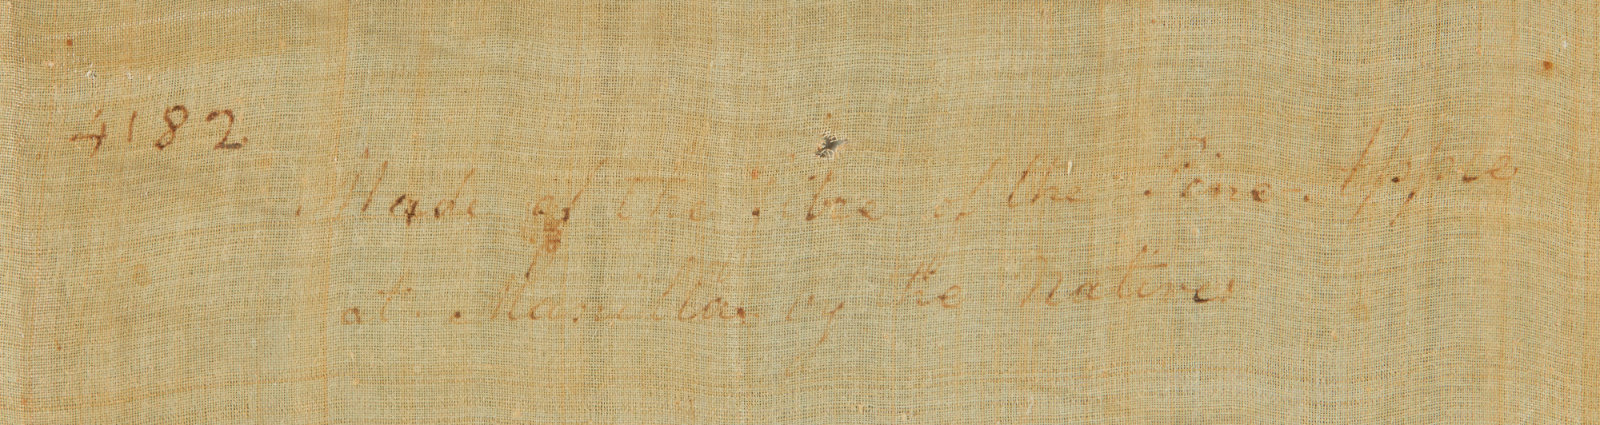 4182
Made of the fibre of the Pine-Apple
at Manilla by the Natives